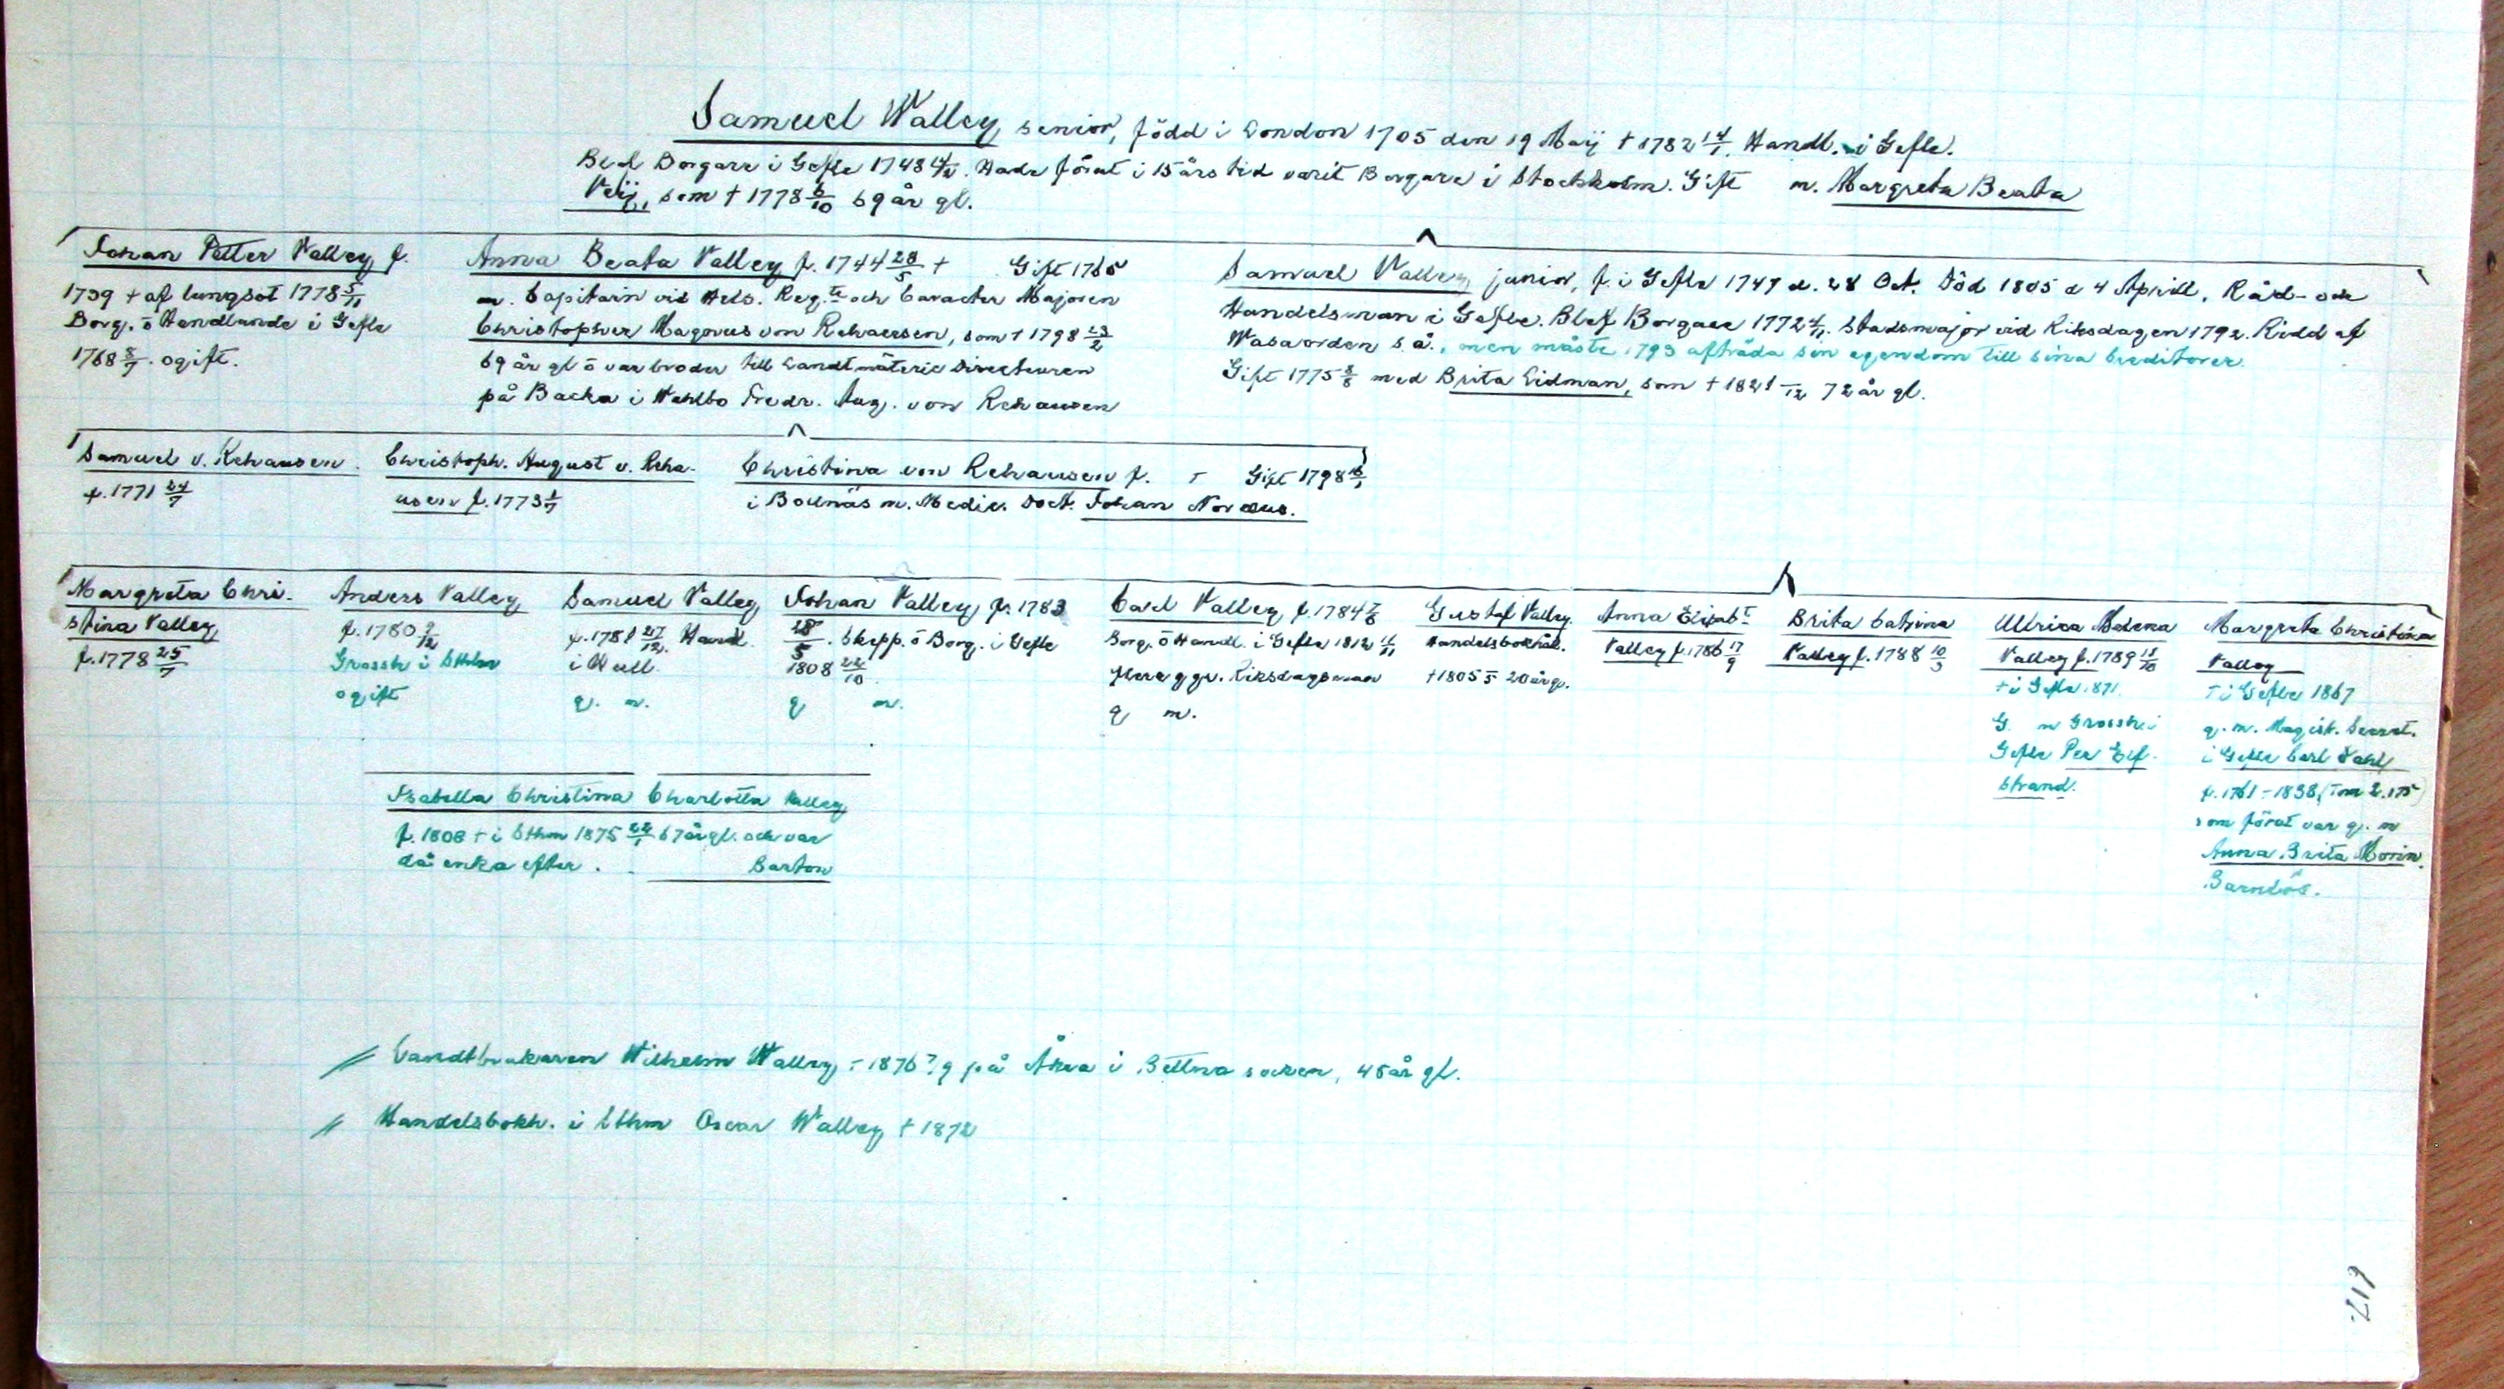 Samuel Walley senior, född i London 1705 den 19 Maij † 1782 14/1. Handl. i Gefle.
Blef Borgare i Gefle 1748. Hade förut i 15 års tid varit Borgare i Stockholm. Gift m. Margreta Beata
som † 1778 6/10 69 år gl.
Johan Petter Valley f.
1739 † af lungsot 1778 5/11
Borg. o Handlande i Gefle
1768 8/7. ogift.
Anna Beata Valley f. 1744 28/5 † Gift 1765
m. Capitain vid Hels. Reg.te och Caracter Majoren
Christopher Magnus von Rehausen, som † 1798 23/2
69 år gl o var broder till Landtmäterie Directeuren
på Backa i Wahlbo Fredr. Aug. von Rehausen
Samuel Valley, junior, f. i Gefle 1747 d. 28 Oct. Död 1805 d 4 Aprill. Råd- och
Handelsman i Gefle. Blef Borgare 1772 4/11. Stadsmajor vid Riksdagen 1792. Ridd af
Wasaorden s. å., men måste 1793 afträda sin egendom till sina Creditorer.
Gift 1775 8/8 med Brita Lidman, som † 1821 /12 72 år gl.
Samuel v. Rehausen.
f. 1771 24/7
Christoph. August v. Reha-
usen f. 1773 1/7
Christina von Rehausen f. † Gift 1798 16/1
i Bollnäs m. Medic. Doct. Johan
Margreta Chri-
stina Valley
f. 1778 25/7
Anders Valley
f. 1780 9/12
Grossh i Sthlm
ogift
Samuel Valley
f. 1781 27/12. Hand.
i Hull.
g. m.
Johan Valley f. 1783
28/5. Skepp. o Borg. i Gefle
1808 22/10.
g m.
Carl Valley f. 1784 7/8
Borg. o Handl. i Gefle 1812 16/11
flera ggr. Riksdagsman
g m.
Gustaf Valley.
Handelsbokhåll.
† 1805 20 år g.
Anna Elisabt
Valley f. 1786 17/9
Brita Catrina
Valley f. 1788 10/3
Ullrica Helena
Valley f. 1789 15/10
† i Gefle 1871.
G m Grossh. i
Gefle Per Elf-
strand.
Margreta Christina
Valley
† i Gefle 1867
g. m. Magist. Secret.
i Gefle Carl Vahl
f. 1761 - 1838, (Tom 2. 175)
som förut var g. m
Anna Brita Morin.
Barnlös.
Isabella Christina Charlotta Valley
f. 1808 † i Sthm 1875 22/1 67 år gl. och var
då enka efter . . Barton
// Landtbrukaren Wilhelm Walley † 1876? g på Åkra i Bettna socken, 45 år gl.
// Handelsbokh. i Sthm Oscar Walley † 1872
217.